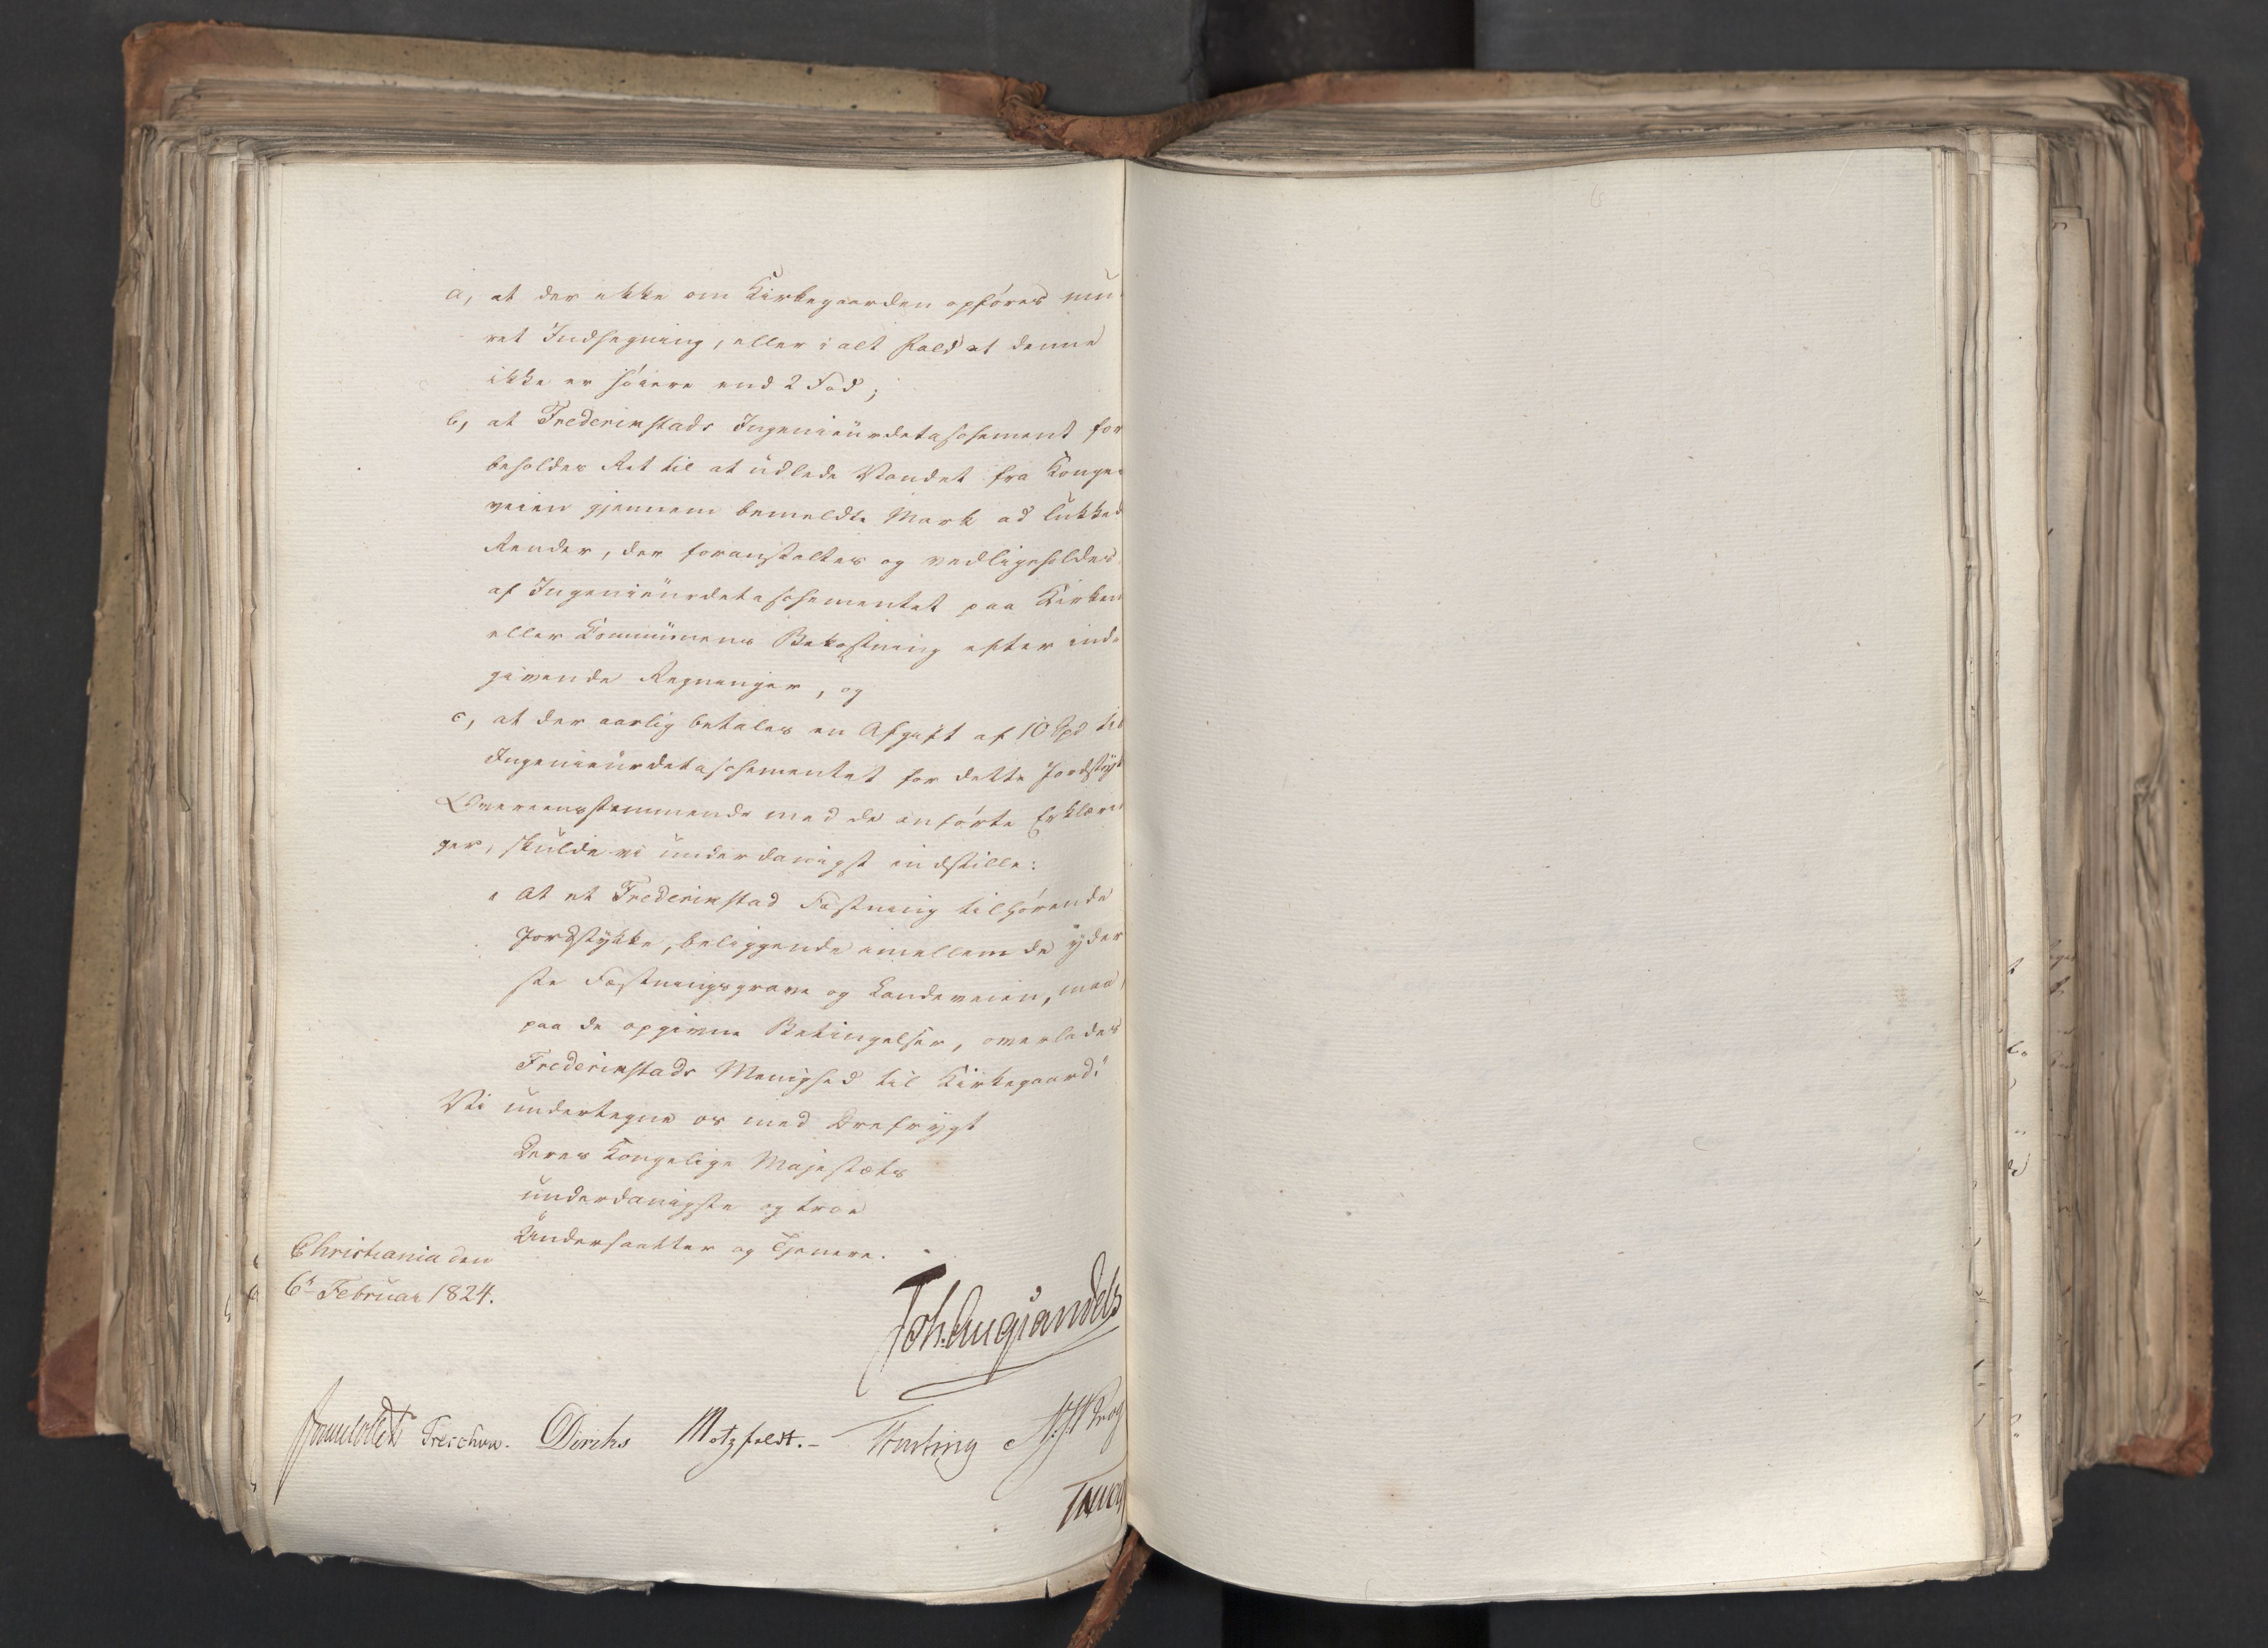 a, at der ikke om Kirkegaarden opføres mu-
ret Indhegning, eller i alt Fald at denne
ikke er høiere end 2 Fod;
b, at Frederikstads Ingenieurdetaschement for
beholdes Ret til at udlede Vandet fra Konge-
veien gjennem bemeldte Mark ad lukked
Render, der foranstaltes og vedligeholdes
af Ingenieurdetaschementet paa Kirken
eller Kommunens Bekostning efter ind-
givende Regninger, og
c, at der aarlig betales en Afgift af 10 Spd til
Ingenieurdetaschementet for dette Jordstyk
Overeensstemmende med de anførte Erklærin
ger, skulde vi underdanigst indstille:
" At et Frederikstad Fæstning tilhørende
Jordstykke, beliggende imellem de yder
ste Fæstningsgrave og Landeveien, maa
paa de opgivne Betingelser, overlades
Frederikstads Menighed til Kirkegaard."
Vi undertegne os med Ærefrygt
Deres Kongelige Majestæts
underdanigste og troe
Undersaatter og Tjenere.
Christiania den
6te Februar 1824.
Joh. Aug. Sandels
Sommerhielm Treschow. Diriks Motzfeldt. Fasting J. H. Krog